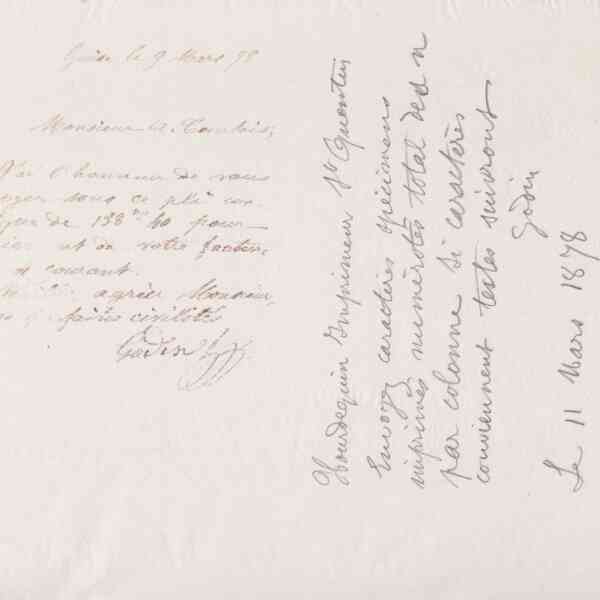 Guise le 9 Mars 78
Monsieur
J'ai l'honneur de vous
sous ce pli
de 138 60 pour
et de votre facture
courant.
agréer Monsieur,
civilités
Godin
Hourdequin Imprimeur St Quentin
Envoyez caractères spécimens
imprimés numérotés total des n
par colonne si caractères
conviennent textes suivront
Godin
Le 11 Mars 1878